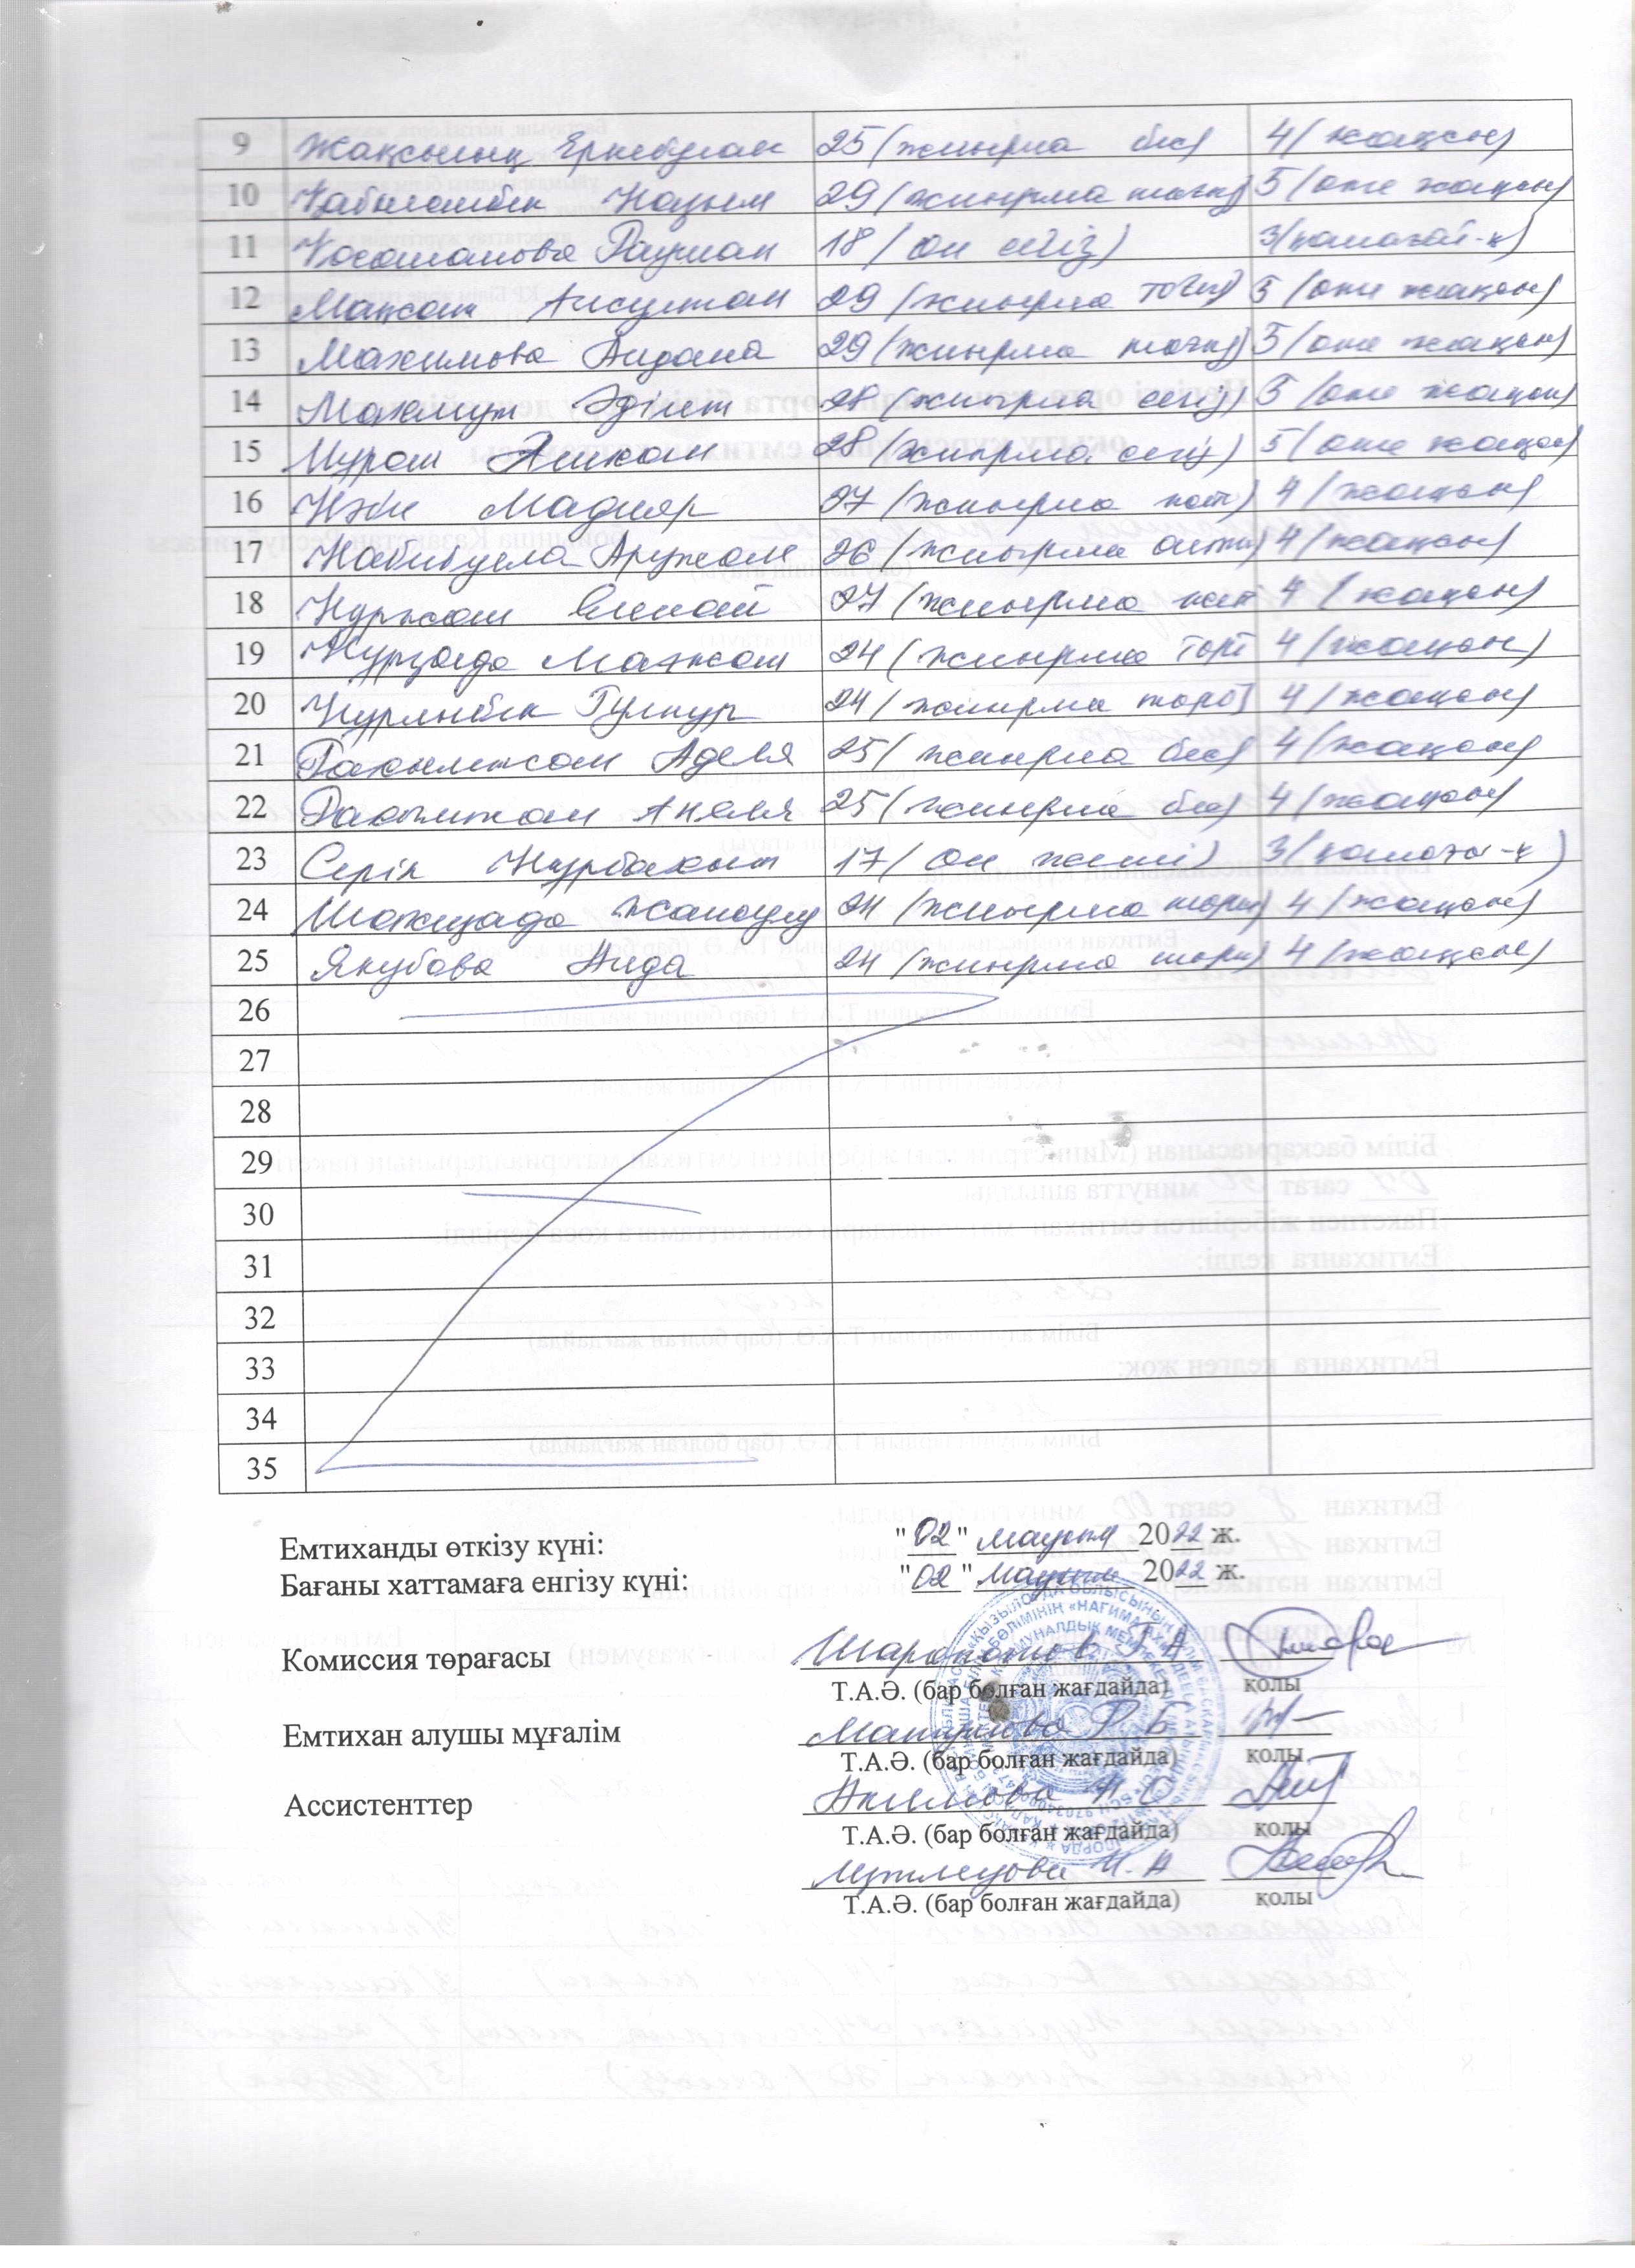 9 Жақсылық Еркебұлан 25 (жиырма бес) 4 (жақсы)
10 Қабылашбек Назым 29 (жиырма тоғыз) 5 (өте жақсы)
11 Раушан 18 (он сегіз) 3 (қанағат-қ)
12 Мақсат Аисултан 29 (жиырма тоғыз) 5 (өте жақсы)
13 Махимова Аидана 29 (жиырма тоғыз) 5 (өте жақсы)
14 Махмут Әділет 28 (жиырма сегіз) 5 (өте жақсы)
15 Мурат 28 (жиырма сегіз) 5 (өте жақсы)
16 Мадияр 27 (жиырма жеті) 4 (жақсы)
17 Набибулла Аружан 26 (жиырма алты) 4 (жақсы)
18 Нұржан 27 (жиырма жеті 4 (жақсы)
19 Мағжан 24 (жиырма төрт 4 (жақсы)
20 Нурлыбек Гулнур 24 (жиырма төрт) 4 (жақсы)
21 Рахымжан Аделя 25 (жиырма бес) 4 (жақсы)
22 Рахымжан Анеля 25 (жиырма бес) 4 (жақсы)
23 Серік Нұрбақыт 17 (он жеті) 3 (қанаға-қ)
24 Шахизада Жансұлу 24 (жиырма төрт) 4 (жақсы)
25 Якубова Аида 24 (жиырма төрт) 4 (жақсы)
26
27
28
29
30
31
32
33
34
35
Емтиханды өткізу күні: "02" маусым 2022 ж.
Бағаны хаттамаға енгізу күні: "02" маусым 2022 ж.
Комиссия төрағасы Шарапатов Ғ. А
Т.А.Ә. (бар болған жағдайда) қолы
Емтихан алушы мұғалім Р. Б
Т.А.Ә. (бар болған жағдайда) қолы
Ассистенттер Акимова
Т.А.Ә. (бар болған жағдайда) қолы
И. А
Т.А.Ә. (бар болған жағдайда) қолы